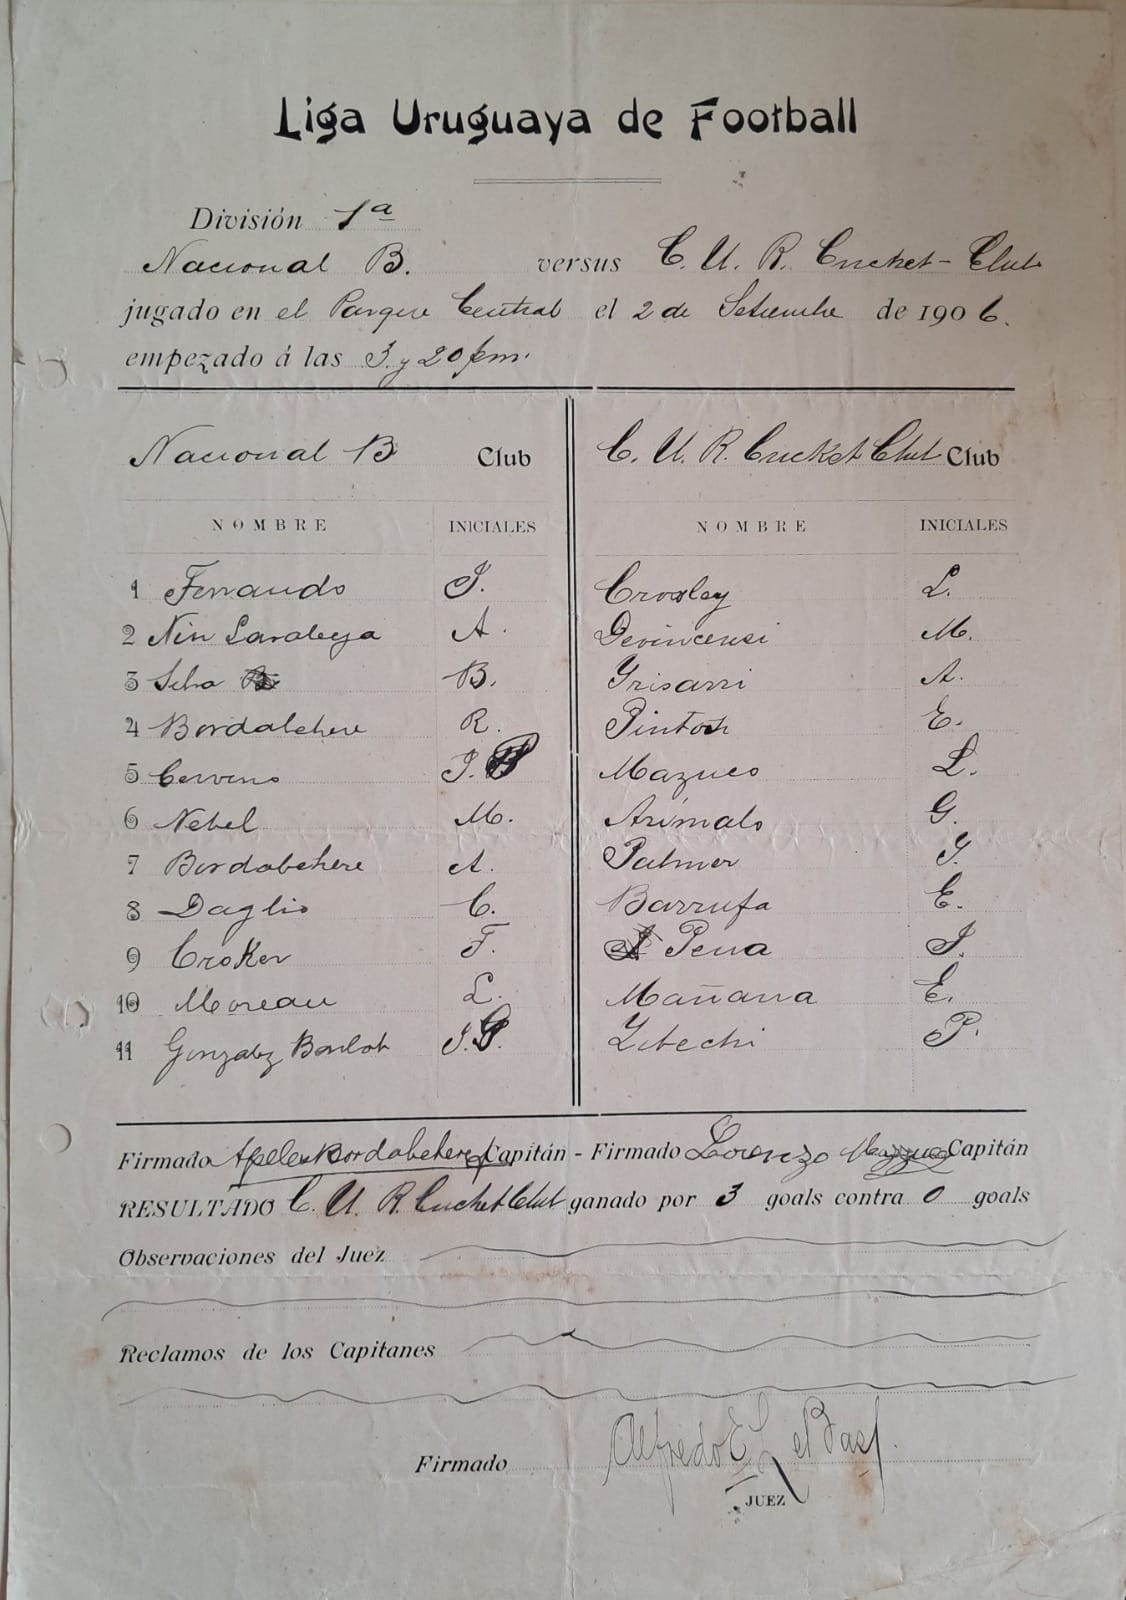 Liga Uruguaya de Football
División 1ª
Nacional B. versus C. U. R. Cricket-Club
jugado en el Parque Central el 2 de Setiembre de 1906.
empezado á las 3 y 20 pm.
Nacional B Club C. U. R. Cricket Club Club
NOMBRE INICIALES NOMBRE INICIALES
1 Ferrando J. Crossley L.
2 Nin Saralega A. Devincensi M.
3 Silva B. Grisarri A.
4 Bordabehere R. Pintos E.
5 Cervino J. Mazuco L.
6 Nebel M. Arimalo G.
7 Bordabehere A. Palmer J.
8 Daglio C. Barrufa E.
9 Croker F. Pena J.
10 Moreau L. Mañana E.
11 Gonzalez Barlot J. Zibechi P.
Firmado Apeles Bordabehere Capitán - Firmado Lorenzo Mazzuco Capitán
RESULTADO C. U. R. Cricket Club ganado por 3 goals contra 0 goals
Observaciones del Juez
Reclamos de los Capitanes
Firmado Alfredo E.
JUEZ